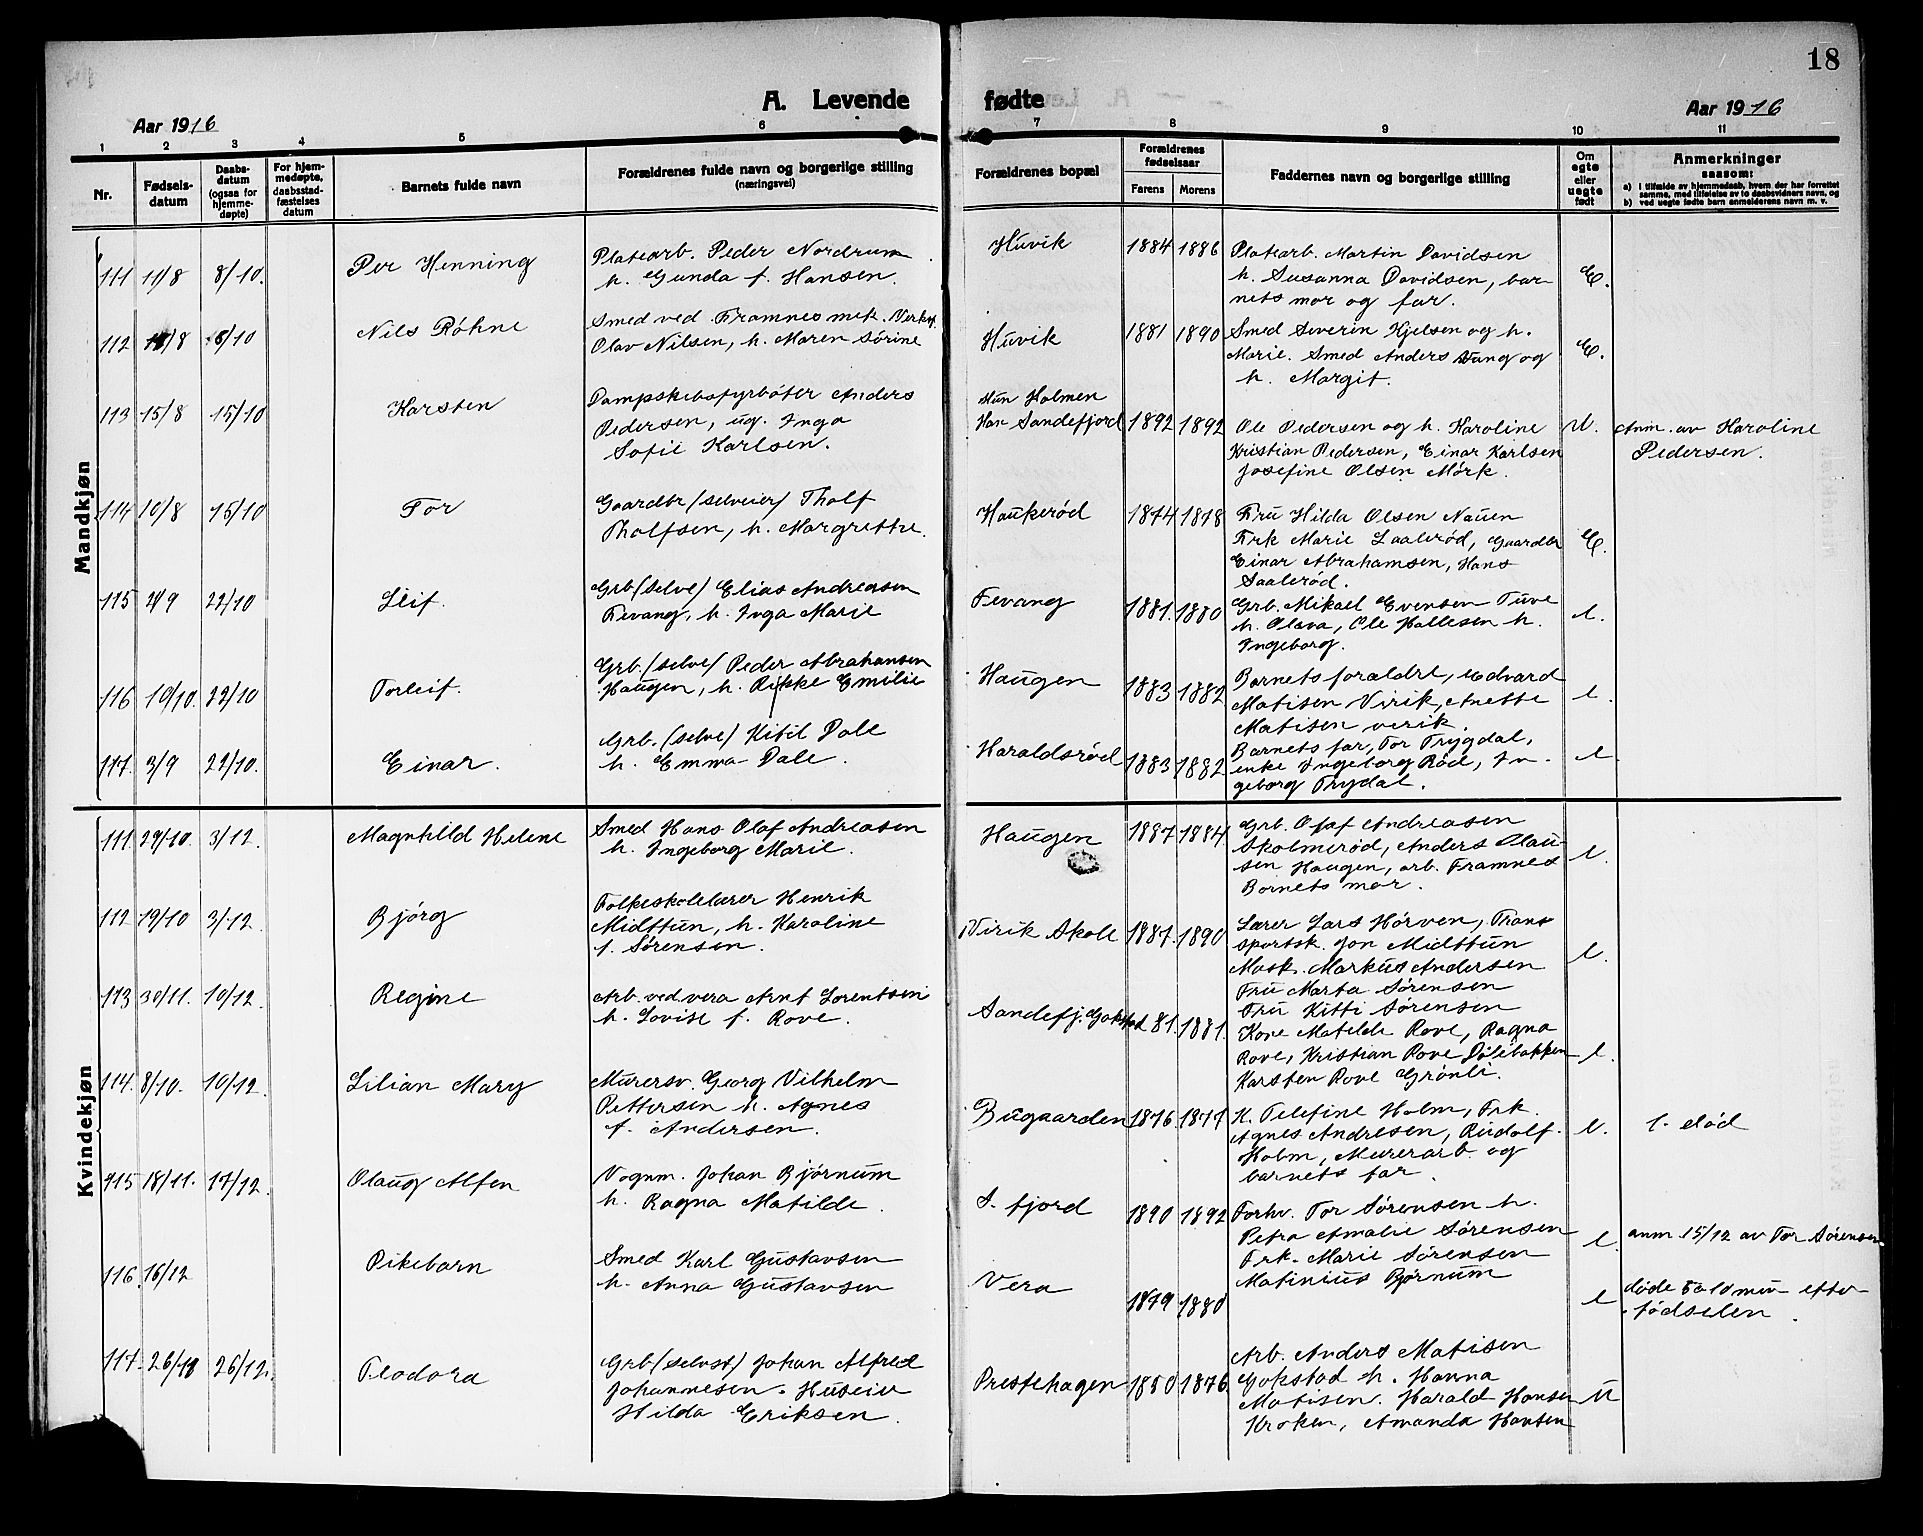 18
A. Levende fødte
Aar 1916
Aar 1916
1 2 3 4 5 6 7 8 9 10 11
Nr.
Fødsels-
datum
Daabs-
datum
(ogsaa for
hjemme-
døpte)
For hjem-
medøpte,
daabsstad-
fæstelses
datum
Barnets fulde navn
Forældrenes fulde navn og borgerlige stilling
(næringsvei)
Forældrenes bopæl
Forældrenes
fødselsaar
Farens Morens
Faddernes navn og borgerlige stilling
Om
egte
eller
uegte
født
Anmerkninger
saasom:
a) i tilfælde av hjemmedaab, hvem der har forrettet
samme, med tilføielse av to daabsvidners navn, og
b) ved uegte fødte barn anmelderens navn m. v.
Mandkjøn
111 11/8 8/10. Per Henning
Platearb. Peder Nordrum
h. Gunda f. Hansen.
Huvik 1884 1886
Platearb. Martin Davidsen
h. Susanna Davidsen, bar-
nets mor og far.
E.
112 /8 8/10 Nils Røhne
Smed ved Framnes mek. Verkst.
Olav Nilsen, h. Maren Sørine
Huvik 1881 1890
Smed Severin Hjelsen og h.
Marie. Smed Anders Vang og
h. Margit.
E.
113 15/8 15/10 Karsten
Dampskibsfyrbøter Anders
Pedersen, ug. Inga
Sofie Karlsen.
Hun Holmen
Han Sandefjord 1892 1892
Ole Pedersen og h. Karoline
Kristian Pedersen, Einar Karlsen
Josefine Olsen Mørk.
U.
Anm. av Karoline
Pedersen.
114 10/8 15/10 Tor
Gaardbr (selveier) Tholf
Tholfsen, h. Margrethe.
Haukerød 1874 1878
Fru Hilda Olsen Nauen
Frk Marie Saalerød, Gaardbr
Einar Abrahamsen, Hans
Saalerød.
E.
115 2/9 22/10 Leif.
Grb (selve) Elias Andreasen
Fevang, h. Inga Marie
Fevang 1881. 1880
Grb. Mikael Evensen Tuve
h. Olava, Ole Hallesen h.
Ingeborg.
e.
116 10/10. 22/10 Torleif.
Grb. (selve) Peder Abrahamsen
Haugen, h. Rikke Emilie
Haugen 1883 1882
Barnets forældre, Edvard
Matisen Virik, Anette
Matisen virik.
e.
117. 3/9 22/10. Einar.
Grb. (selve) Kitil Dale
h. Emma Dale.
Haraldsrød 1883 1882
Barnets far, Tor Trygdal,
enke Ingeborg Rød, In-
geborg Trydal.
e.
Kvindekjøn
111. 29/10. 3/12. Magnhild Helene
Smed Hans Olaf Andreasen
h. Ingeborg Marie.
Haugen 1887 1884.
Grb. Olaf Andreasen
Skolmerød, Anders Clau-
sen Haugen, arb. Framnes
Barnets mor.
e.
112 19/10 3/12. Bjørg
Folkeskolelærer Henrik
Midttun, h. Karoline
f. Sørensen.
Virik Skole 1887. 1890
Lærer Lars Hørven, Trans
sportsk. Jon Midttun
Mask. Markus Andersen
Fru Marta Sørensen
Fru Kitti Sørensen
e.
113 30/11. 10/12. Regine
Arb. ved vera Arnt Lorentsen
h. Lovise f. Rove.
Sandefj. Gokstad 81. 1881.
Kone Matilde Rove, Ragna
Rove, Kristian Rove Dølebakken
Karsten Rove Grønli.
e.
114. 8/10. 10/12. Lilian Mary
Murersv. Georg Vilhelm
Pettersen h. Agnes
f. Andersen.
Bugaarden 1876 1877
K. Telefine Holm, Frk.
Agnes Andresen, Rudolf
Holm, Murerarb. og
barnets far.
e.
1. død
115 18/11. 17/12. Olaug Alfen
Vognm. Johan Bjørnum
h. Ragna Matilde.
S. fjord 1890 1892
Forhv. Tor Sørensen h.
Petra Amalie Sørensen
Frk. Marie Sørensen
Matinius Bjørnum
e.
anm 15/12 av Tor Sørensen
116. 16/12 Pikebarn
Smed Karl Gustavsen
h. Anna Gustavsen
Vera 1879 1880
e
døde 5 a 10 min efter
fødselen.
117. 26/ 26/12. Teodora
Grb (selvst) Johan Alfred
Johannesen. Huseier
Hilda Eriksen.
Prestehagen 1850 1876
Arb. Anders Matisen
Gokstad h. Hanna
Matisen. Harald Hansen
Kroken, Amanda Hansen
U